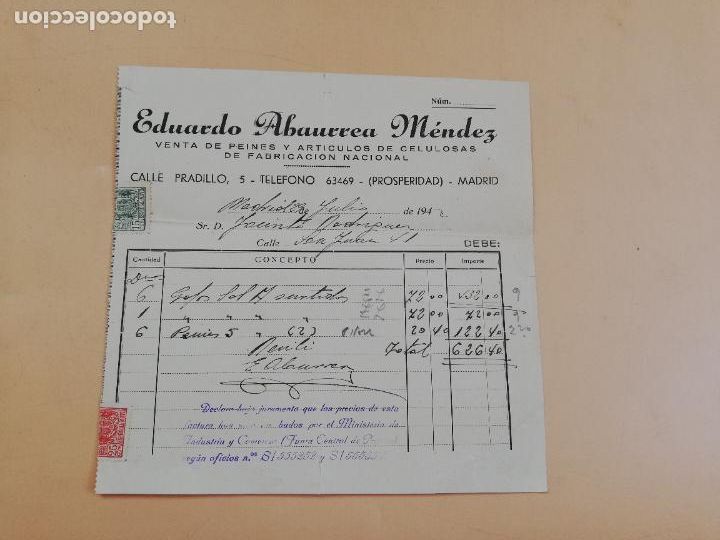 todocoleccion
Núm.
Eduardo Abaurrea Méndez
VENTA DE PEINES Y ARTICULOS DE CELULOSAS
DE FABRICACION NACIONAL
CALLE PRADILLO, 5 - TELEFONO 63469 - (PROSPERIDAD) - MADRID
Madrid de Julio de 194
Sr. D. Jacinto Rodriguez
Calle San Juan 41 DEBE:
Cantidad CONCEPTO Precio Importe
6 Gafas Sol surtidos 72 00 432 00
1 " " " " 72 00 72 00
6 Peines 5 " 627 20 40 122 40
Recibí Total 626.40
E. Abaurrea
Declaro bajo juramento que los precios de esta
factura han por el Ministerio de
Industria y Comercio (Junta Central de
según oficios n.os S1-555252 y